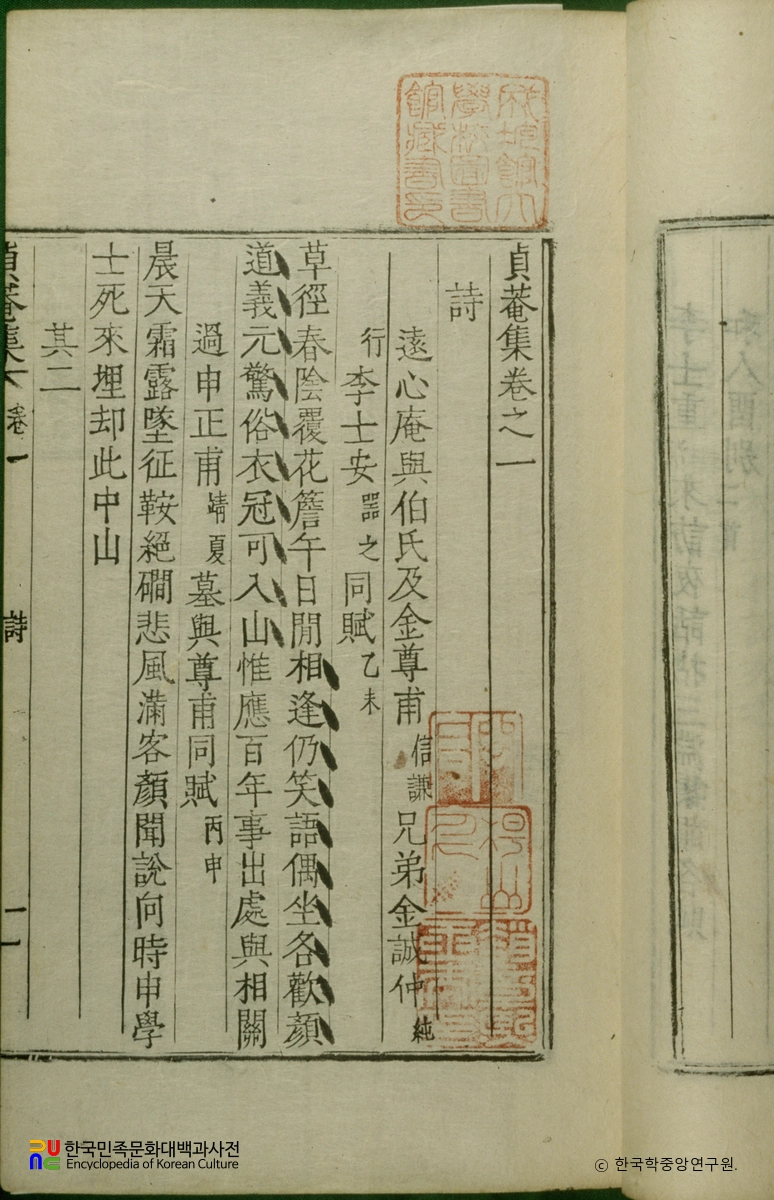 貞菴集卷之一
詩
遠心庵與伯氏及金尊甫信謙兄弟金誠仲純
行李士安器之同賦乙未
草徑春陰覆花簷午日閒相逢仍笑語偶坐各歡顏
道義元驚俗衣冠可入山惟應百年事出處與相關
過申正甫靖夏墓與尊甫同賦丙申
晨天霜露墜征鞍絕磵悲風滿客顏聞說向時申學
士死來埋却此中山
其二
貞菴集 卷一 詩 一
成均館大
學校圖書
館藏書印
한국민족문화대백과사전
Encyclopedia of Korean Culture
© 한국학중앙연구원.